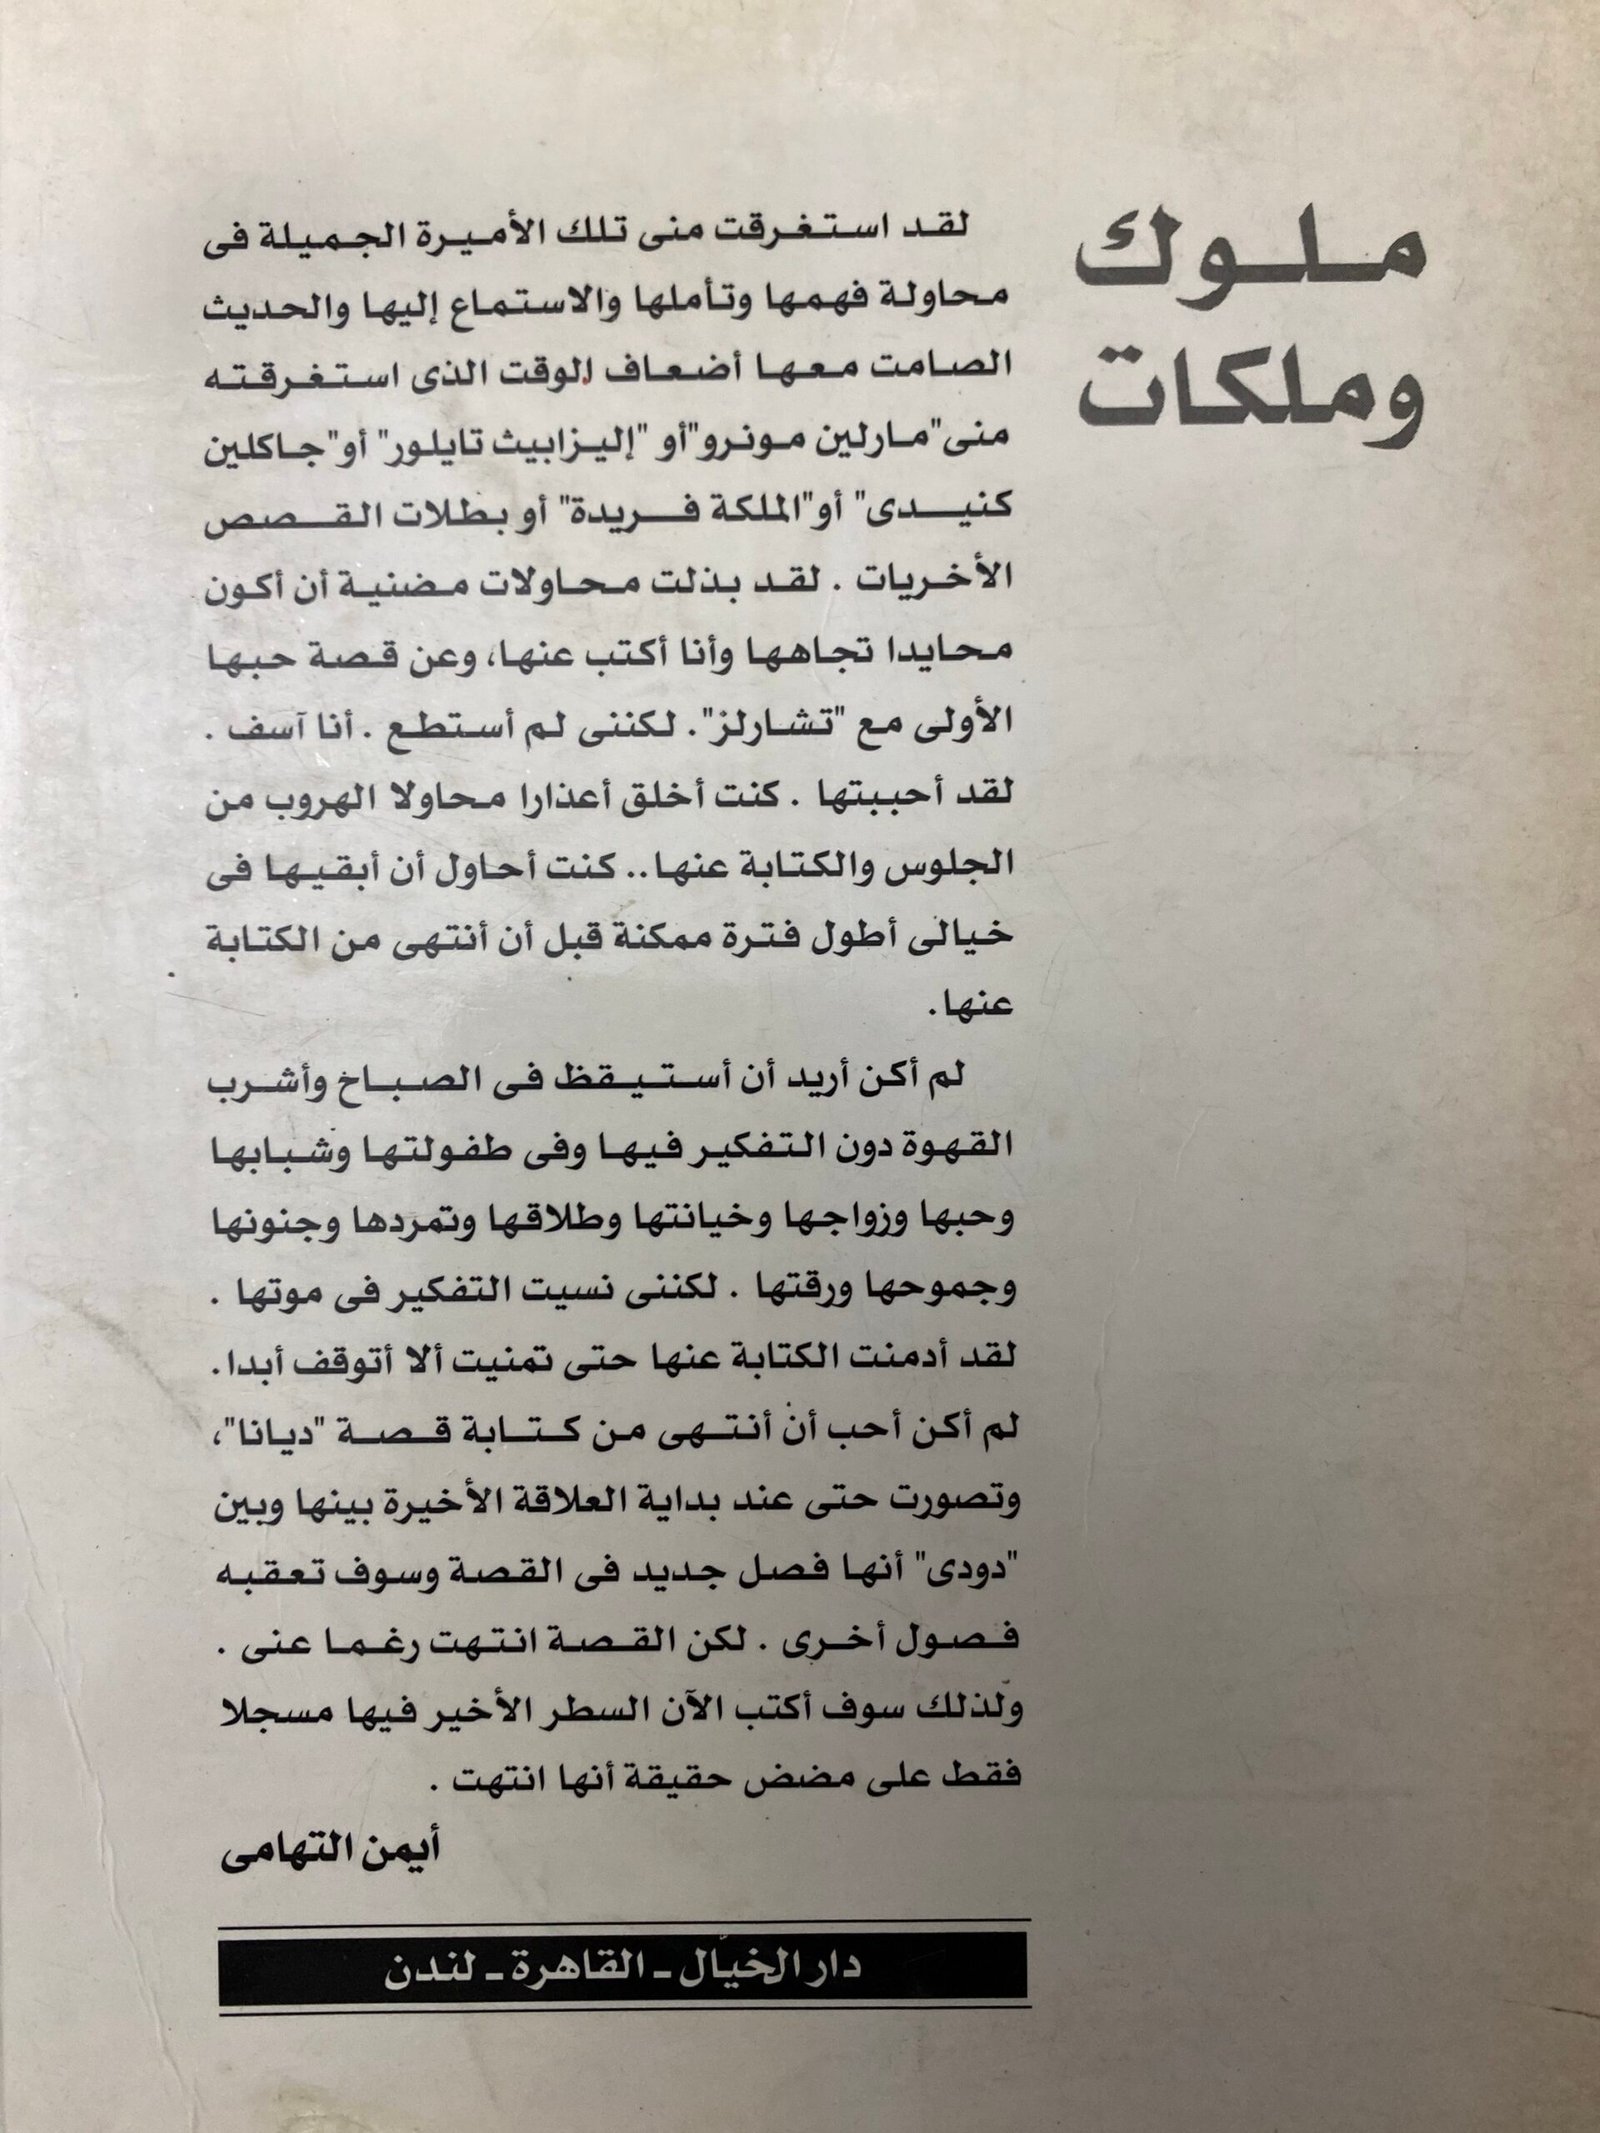 ملوك
وملكات
لقد استغرقت منى تلك الأميرة الجميلة فى
محاولة فهمها وتأملها والاستماع إليها والحديث
الصامت معها أضعاف الوقت الذى استغرقته
منى"مارلين مونرو"أو "إليزابيث تايلور" أو"جاكلين
كنيدى" أو"الملكة فريدة" أو بطلات القصص
الأخريات . لقد بذلت محاولات مضنية أن أكون
محايدا تجاهها وأنا أكتب عنها، وعن قصة حبها
الأولى مع "تشارلز". لكننى لم أستطع . أنا آسف .
لقد أحببتها . كنت أخلق أعذارا محاولا الهروب من
الجلوس والكتابة عنها.. كنت أحاول أن أبقيها فى
خيالى أطول فترة ممكنة قبل أن أنتهى من الكتابة
عنها.
لم أكن أريد أن أستيقظ فى الصباخ وأشرب
القهوة دون التفكير فيها وفى طفولتها وشبابها
وحبها وزواجها وخيانتها وطلاقها وتمردها وجنونها
وجموحها ورقتها . لكننى نسيت التفكير فى موتها .
لقد أدمنت الكتابة عنها حتى تمنيت ألا أتوقف أبدا.
لم أكن أحب أن أنتهى من كتابة قصة "ديانا"،
وتصورت حتى عند بداية العلاقة الأخيرة بينها وبين
"دودى" أنها فصل جديد فى القصة وسوف تعقبه
فصول أخرى . لكن القصة انتهت رغما عنى .
ولذلك سوف أكتب الآن السطر الأخير فيها مسجلا
فقط على مضض حقيقة أنها انتهت .
أيمن التهامى
دار الخيّال ـ القاهرة ـ لندن